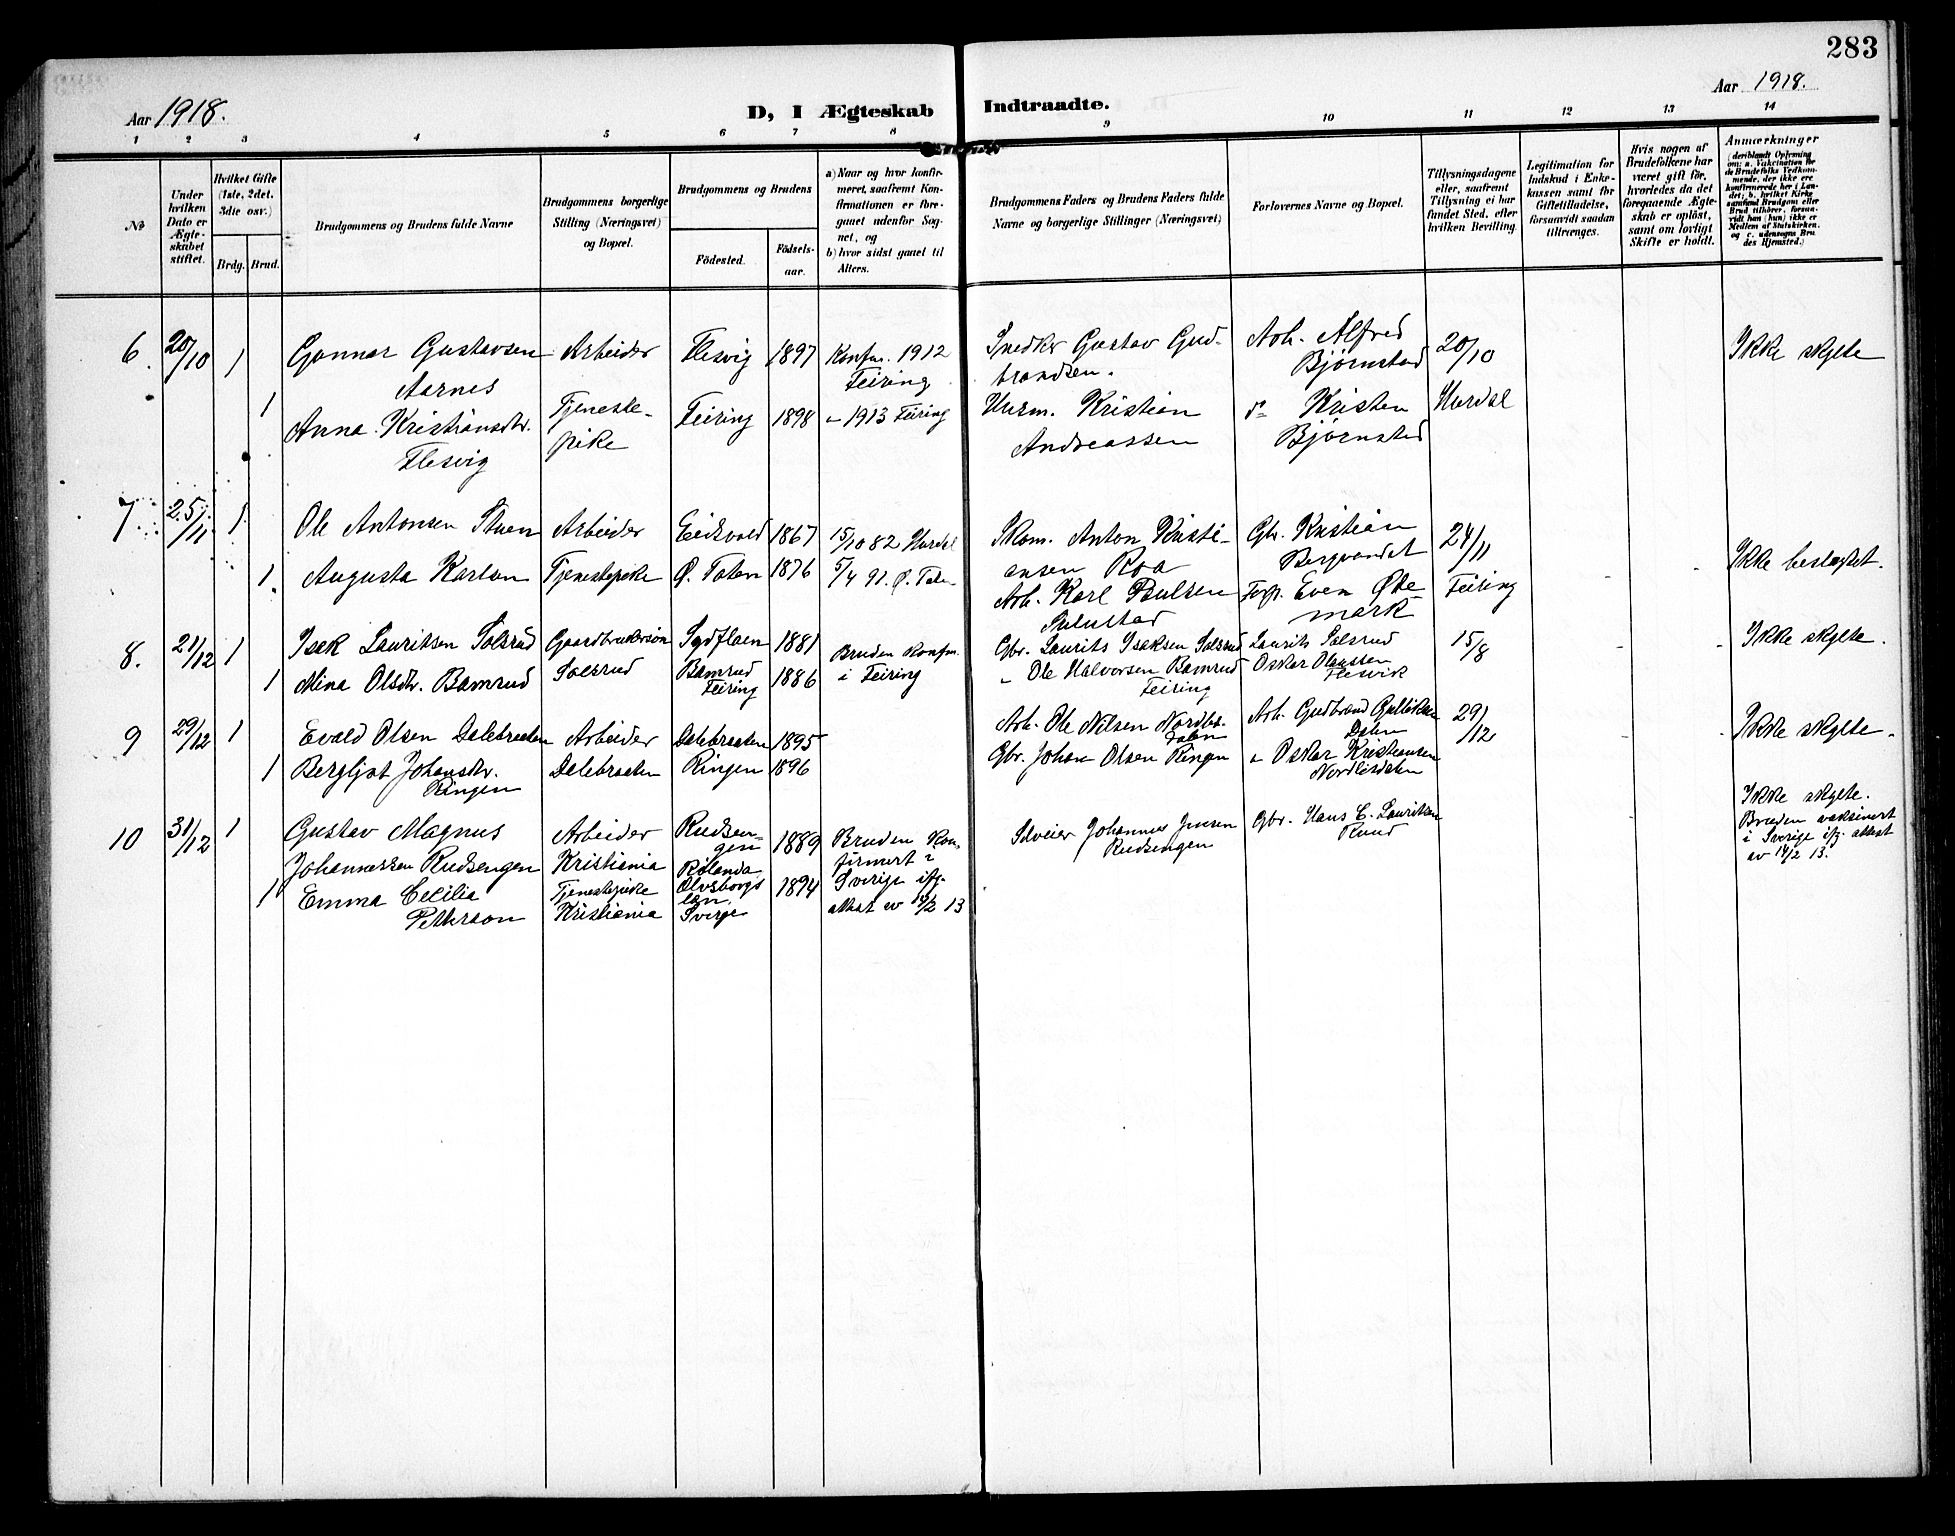 283
Aar 1918.
D, I Ægteskab Indtraadte.
Aar 1918.
1 2 3 4 5 6 7 8 9 10 11 12 13 14
№
Under hvilken Dato er Ægteskabet stiftet.
Hvilket Gifte (1ste, 2det, 3die osv.)
Brdg. Brud.
Brudgommens og Brudens fulde Navne
Brudgommens borgerlige Stilling (Næringsvei) og Bopæl.
Brudgommens og Brudens
Födested.
Födselsaar.
a) Naar og hvor konfirmeret, saafremt Konfirmationen er foregaaet udenför Sognet, og
b) hvor sidst gaaet til Alters.
Brudgommens Faders og Brudens Faders fulde Navne og borgerlige Stillinger (Næringsvei)
Forlovernes Navne og Bopæl.
Tillysningsdagene eller, saafremt Tillysning ei har fundet Sted, efter hvilken Bevilling.
Legitimation for Indskud i Enkekassen samt for Giftetilladelse, forsaavidt saadan tiltrænges.
Hvis nogen af Brudefolkene har været gift för, hvorledes da det foregaaende Ægteskab er oplöst, samt om lovligt Skifte er holdt.
Anmærkninger
(deriblandt Oplysning om: a. Vakcination for de Brudefolks Vedkommende, der ikke ere konfirmerede her i Landet; b. hvilket Kirkesamfund Brudgom eller Brud tilhörer, forsaavidt han (hun) ikke er Medlem af Statskirken, og c. udensogns Brudes Hjemsted.)
6. 20/10 1 Gunnar Gustavsen Aarnes Arbeider Flesvig 1897 Konfm. 1912 Feiring Snedker Gustav Gudbrandsen. Arb. Alfred Bjørnstad 20/10 Ikke skylte
1 Anna Kristiansdtr. Flesvig Tjenestepike Feiring 1898 " 1913 Feiring Husm. Kristian Andreassen do Kristen Bjørnstad Hurdal
7. 25/11 1 Ole Antonsen Stuen Arbeider Eidsvold 1867 15/10 82 Hurdal Skom. Anton Kristiansen Roa Gbr. Kristian Bergvandet 24/11 Ikke beslægtet.
1. Augusta Karlsen Tjenestepike Ø. Toten 1876 5/4 91. Ø. Toten Arb. Karl Paulsen Even Ødemark Feiring
8. 21/12 1 Isak Lauritsen Solsrud Gaardbrukersøn 1881 Bruden Konfm. i Feiring Gbr. Laurits Isaksen Solsrud Laurits Solsrud 15/8 Ikke skylte.
1 Mina Olsdtr. Bamrud Solsrud Bamrud Feiring 1886 " Ole Halvorsen Bamrud Feiring Oskar Olaussen Flesvik
9 29/12 1 Evald Olsen Dalebraaten Arbeider Dalebraaten 1895 Arb. Ole Nilsen Arb. Gudbrand Gulliksen Dalen 29/12 Ikke skylte.
1 Bergljot Johansdtr. Ringen Dalebraaten Ringen 1896 Gbr. Johan Olsen Ringen " Oskar Kristiansen Nordlisdalen
10 31/12 1 Gustav Magnus Johannessen Rudsengen Arbeider Kristiania Rudsengen 1889 Bruden Konfirmert i Sverige ifg. attest av Selveier Johannes Jensen Rudsengen Gbr. Hans C. Lauritsen Ruud Ikke skylte. Bruden vaksinert i Sverige ifg. attest av 14/2 13.
1 Emma Cecilia Petterson Tjenestepike Kristiania Rölanda Elvsborgs len Sverge 1894